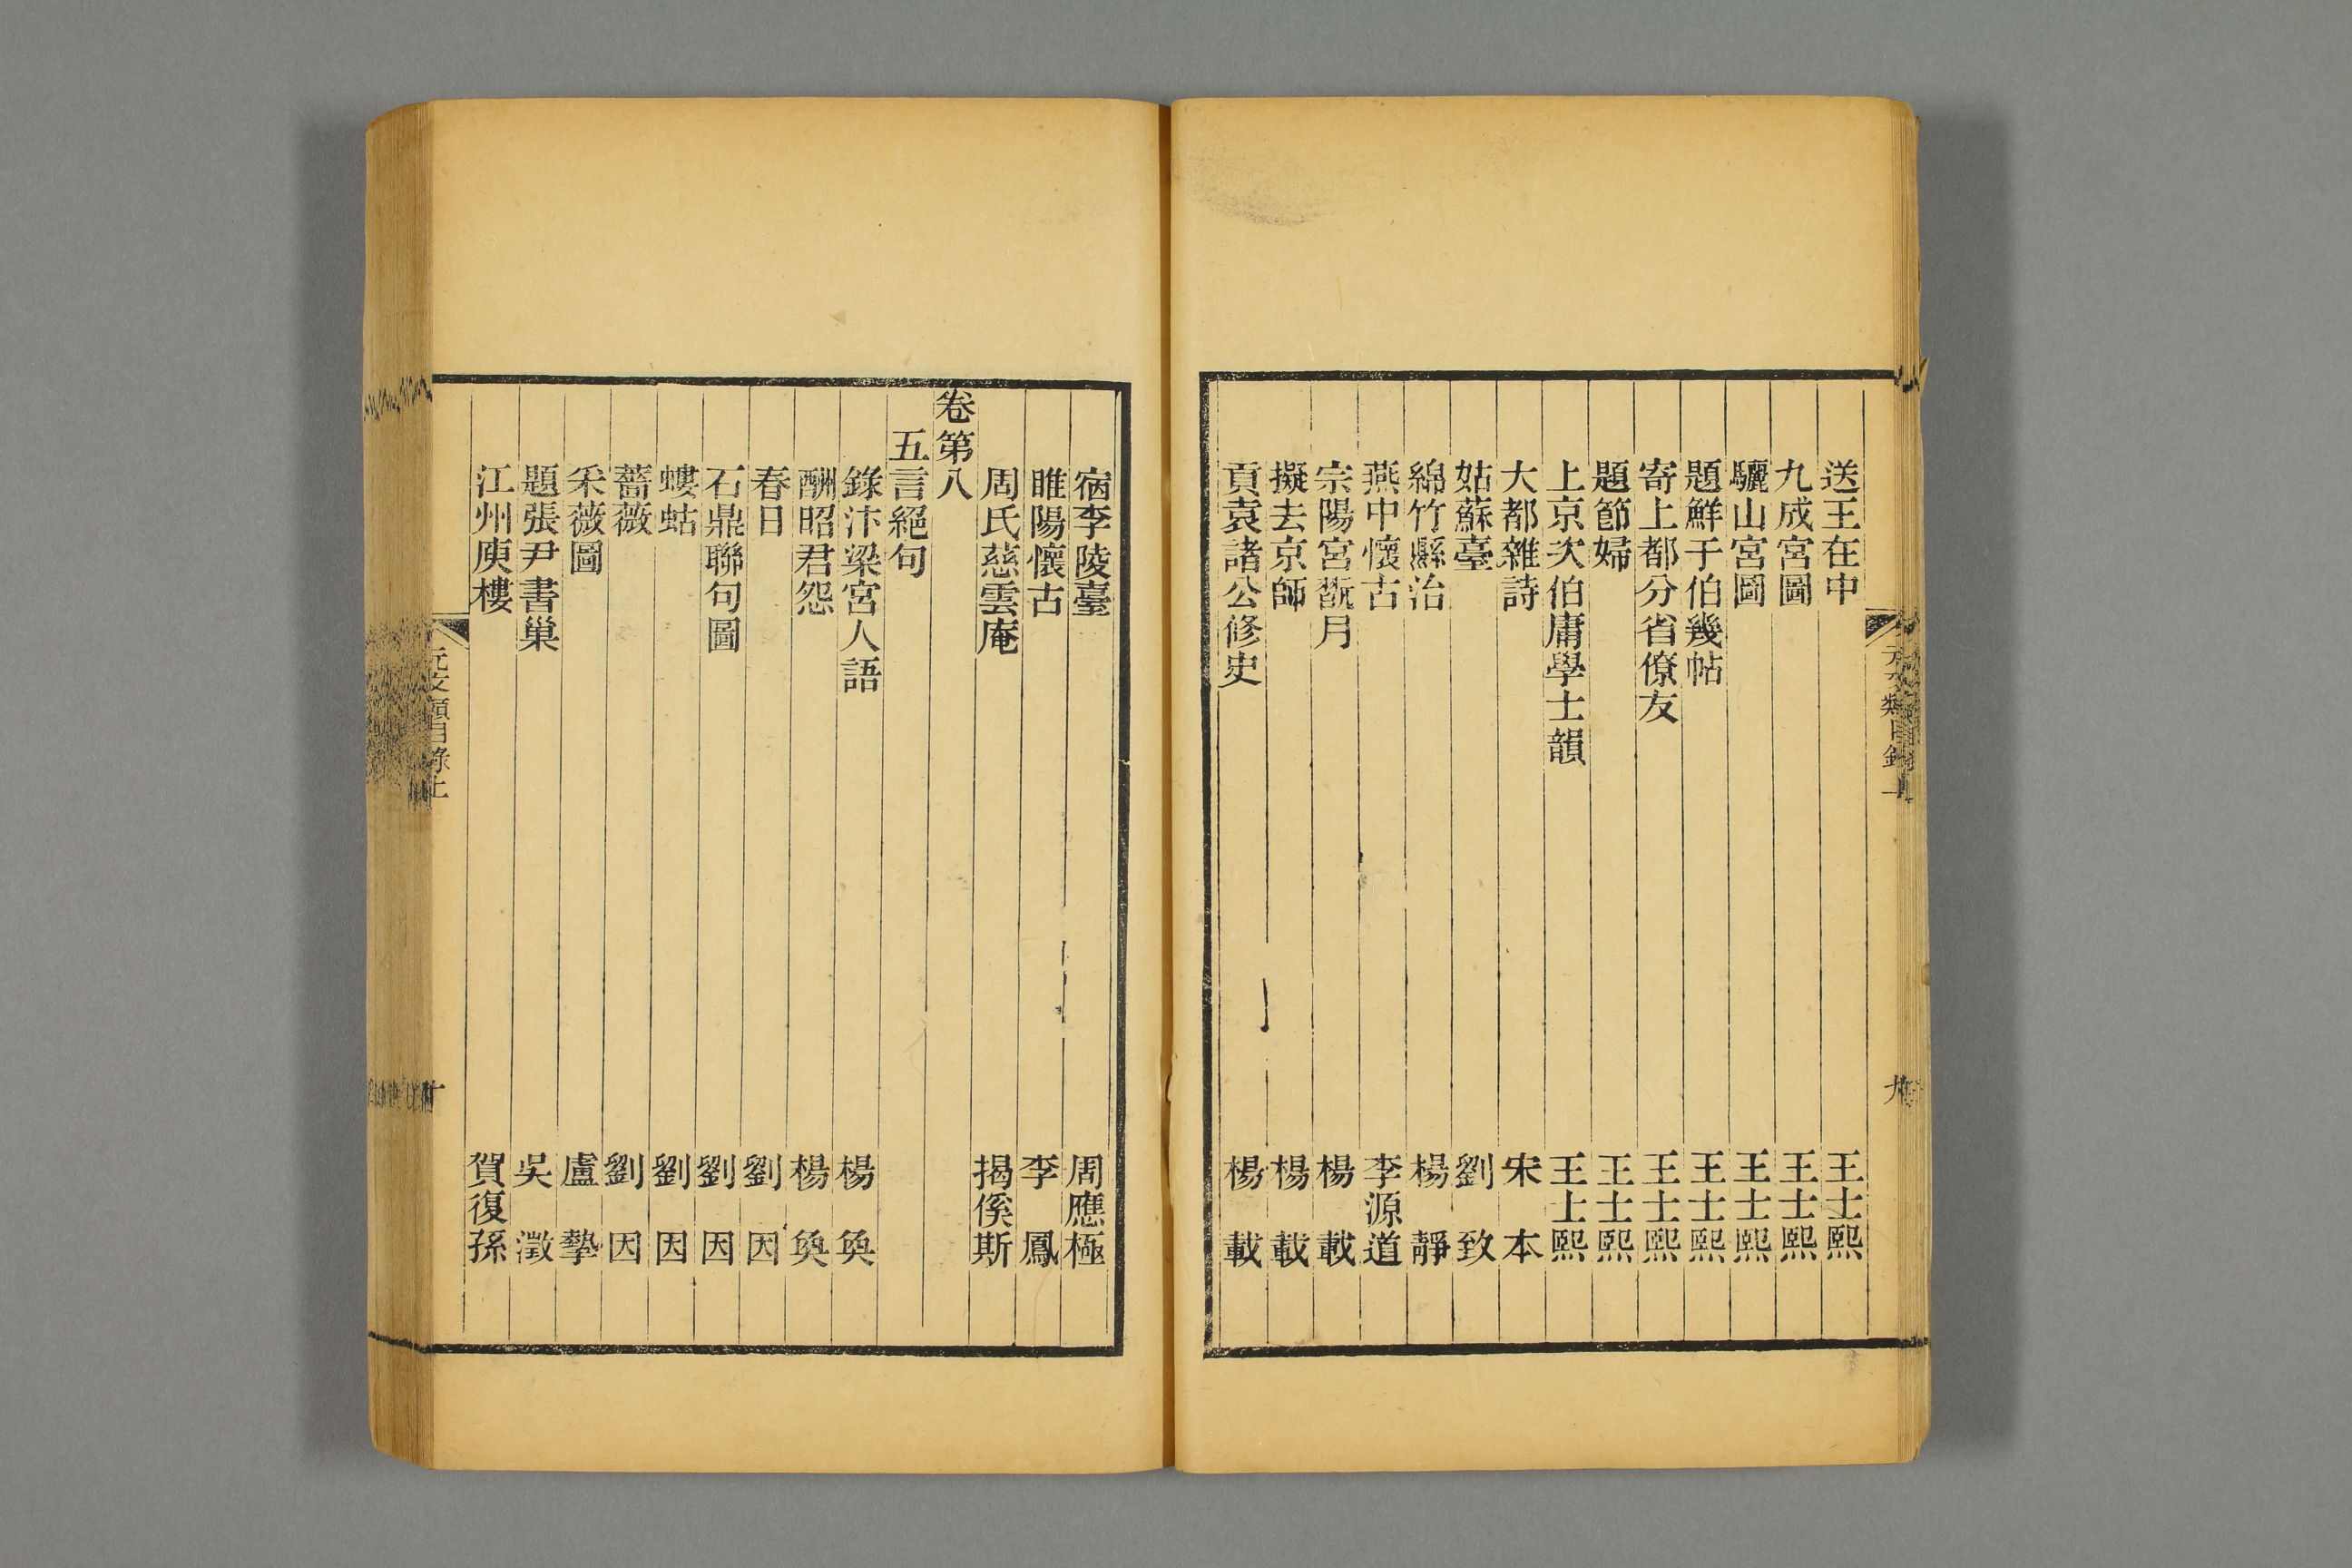 送王在中　王士熙
九成宮圖　王士熙
驪山宮圖　王士熙
題鮮于伯幾帖　王士熙
寄上都分省僚友　王士熙
題節婦　王士熙
上京次伯庸學士韻　王士熙
大都雜詩　宋　本
姑蘇臺　劉　致
綿竹縣治　楊　靜
燕中懷古　李源道
宗陽宮翫月　楊　載
擬去京師　楊　載
貢袁諸公修史　楊　載
宿李陵臺　周應極
睢陽懷古　李　鳳
周氏慈雲庵　揭傒斯
卷第八
五言絕句
錄汴梁宮人語　楊　奐
酬昭君怨　楊　奐
春日　劉　因
石鼎聯句圖　劉　因
螻蛄　劉　因
薔薇　劉　因
采薇圖　盧　摯
題張尹書巢　吳　澂
江州庾樓　賀復孫
元文類目錄上